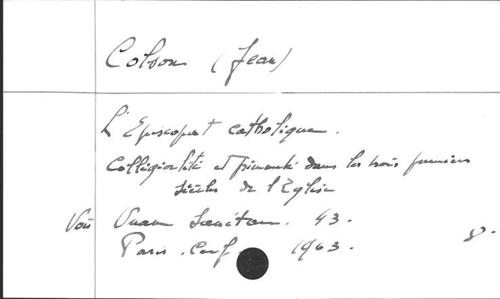 Colson (Jean)
L'Episcopat catholique.
Collégialité et primauté dans les trois premiers
siècles de l'Eglise
Voir Unam Sanctam. 43.
Paris. Cerf. 1963. 8°.